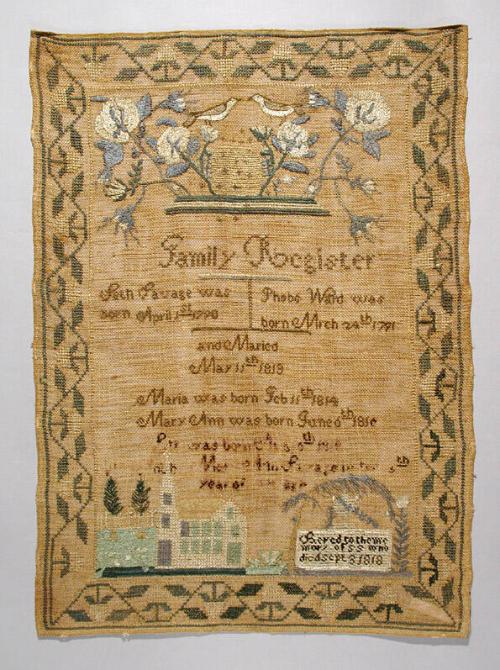 Family Register
Seth Savage was
born April 1st 1790
Phebe Ward was
born Mrch 24th 1791
and Maried
May 11th 1813
Maria was born Feb 11th 1814
Mary Ann was born June 6th 1816
was born
Mary Ann Savage in the th
year of
Sacred to the me
mory of S S who
died Sept 3 1818